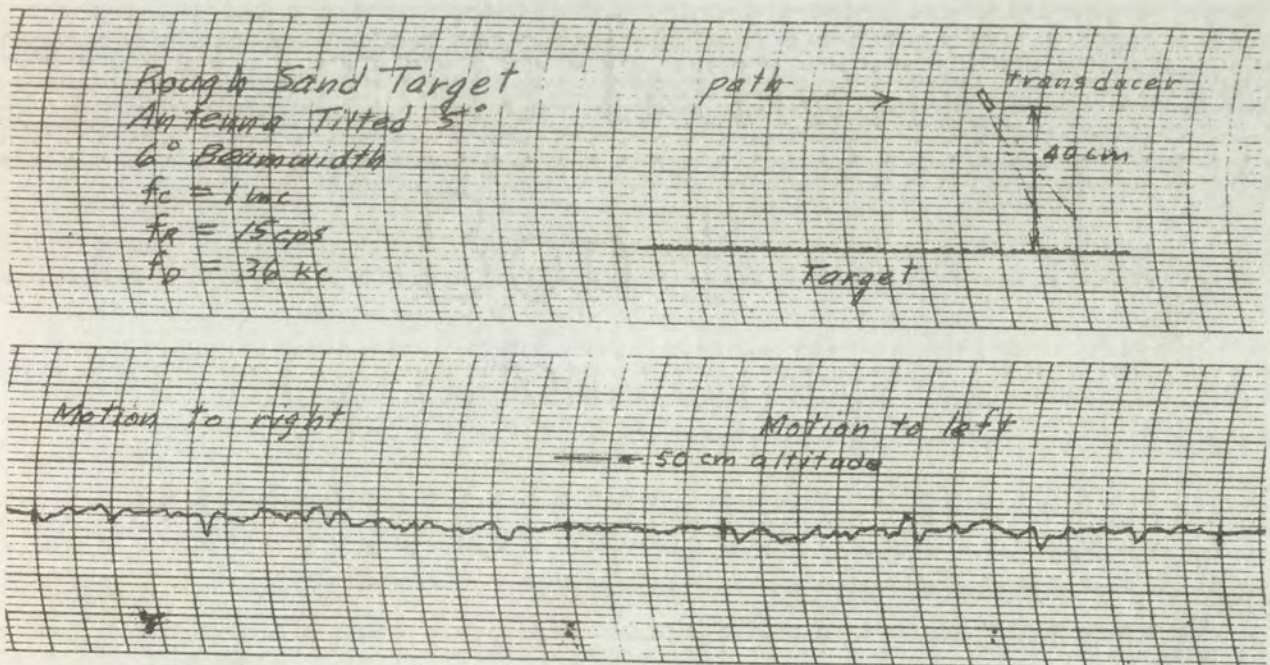 Rough Sand Target
Antenna Tilted 5°
6° Beamwidth
fc = 1 mc
fR = 15 cps
fD = 36 kc
path
transdacer
40 cm
Target
Motion to right
Motion to left
50 cm altitude